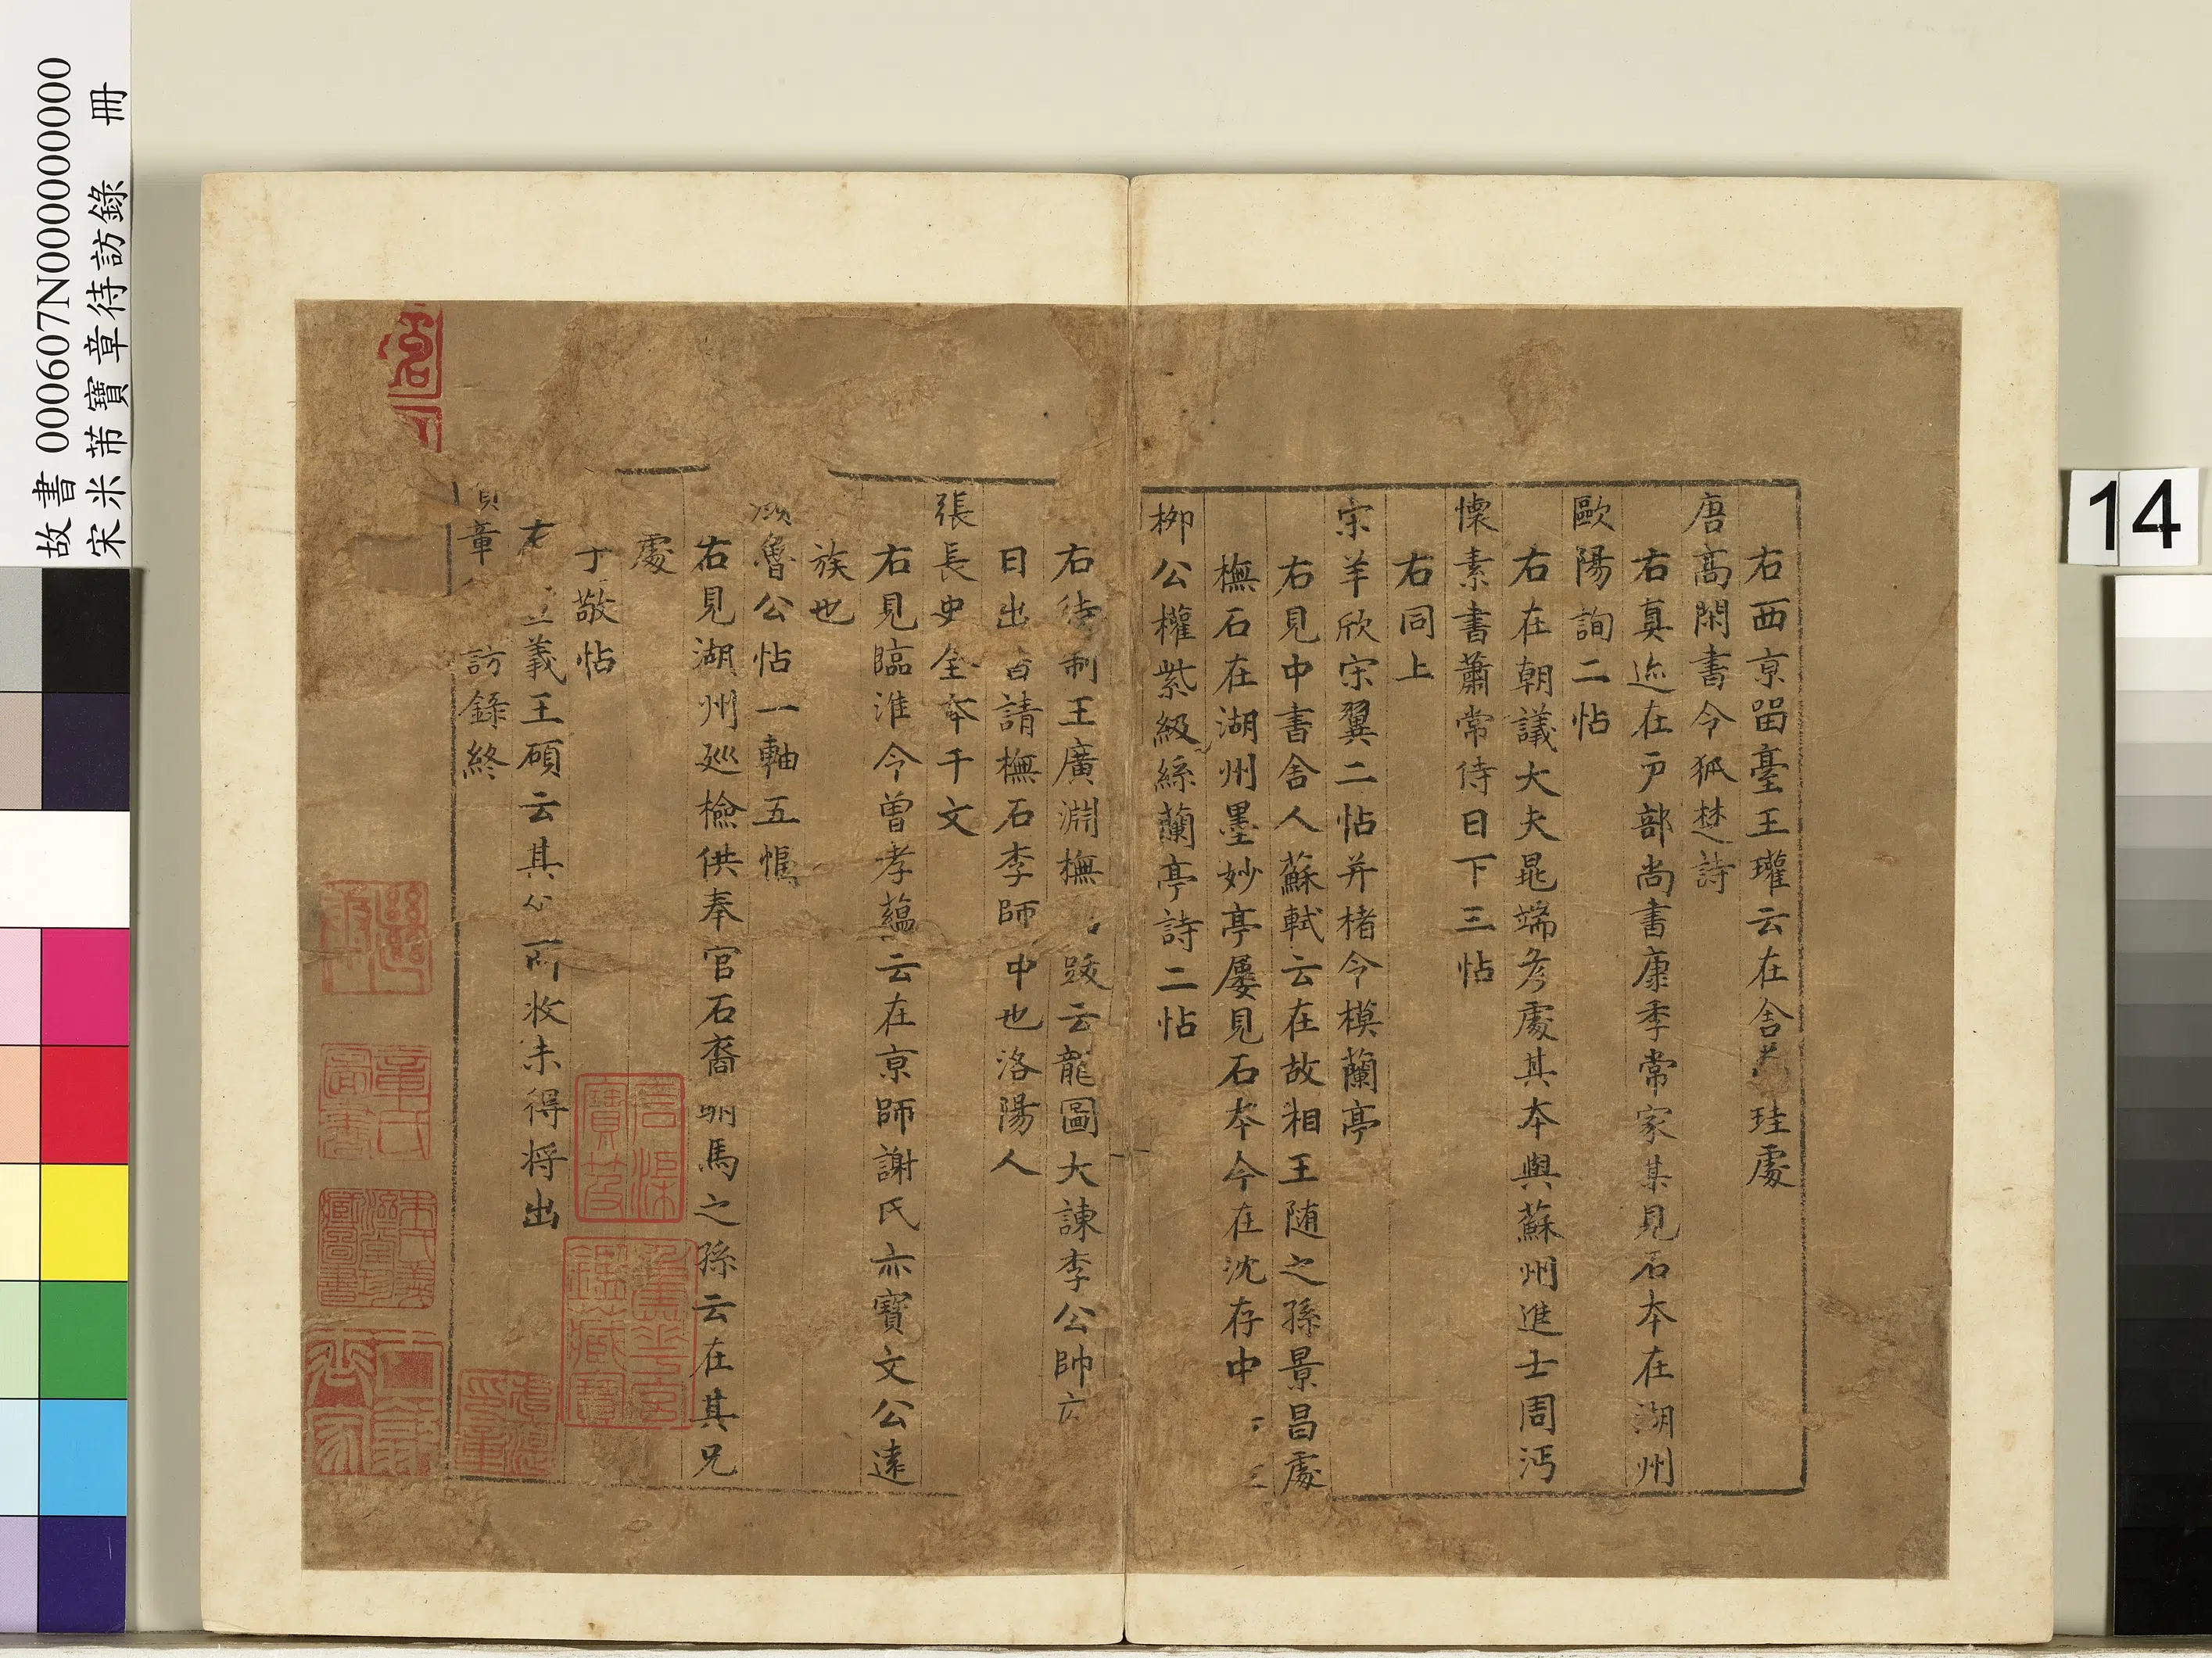 右西京留臺王瓘云在舍 珪處
唐高閑書令狐楚詩
右真迹在戸部尚書康季常家某見石本在湖州
歐陽詢二帖
右在朝議大夫晁端彦處其本與蘇州進士周沔
懷素書蕭常侍日下三帖
右同上
宋羊欣宋翼二帖并楮令模蘭亭
右見中書舍人蘇軾云在故相王随之孫景昌處
橅石在湖州墨妙亭屢見石本今在沈存中
栁公權紫級絲蘭亭詩二帖
右待制王廣淵橅 跋云龍圖大諫李公帥
日出 請橅石李師中也洛陽人
張長史全本千文
右見臨淮今曽孝蘊云在京師謝氏亦寶文公遠
族也
魯公帖一軸五幅
右見湖州廵檢供奉官石裔駙馬之孫云在其兄
處
敬帖
右 義王碩云其 所收未得将出
章 訪錄終
故書 000607N000000000
宋米芾寶章待訪錄 冊
14